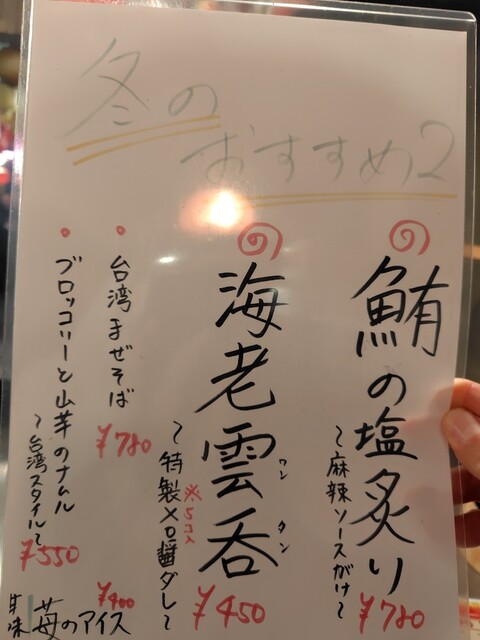 冬の
おすすめ2
鮪の塩炙り
〜麻辣ソースがけ〜
¥780
海老雲呑
ワン タン
※5コ入
〜特製XO醤ダレ〜
¥450
台湾まぜそば
¥780
ブロッコリーと山芋のナムル
〜台湾スタイル〜
¥550
甘味 苺のアイス
¥400